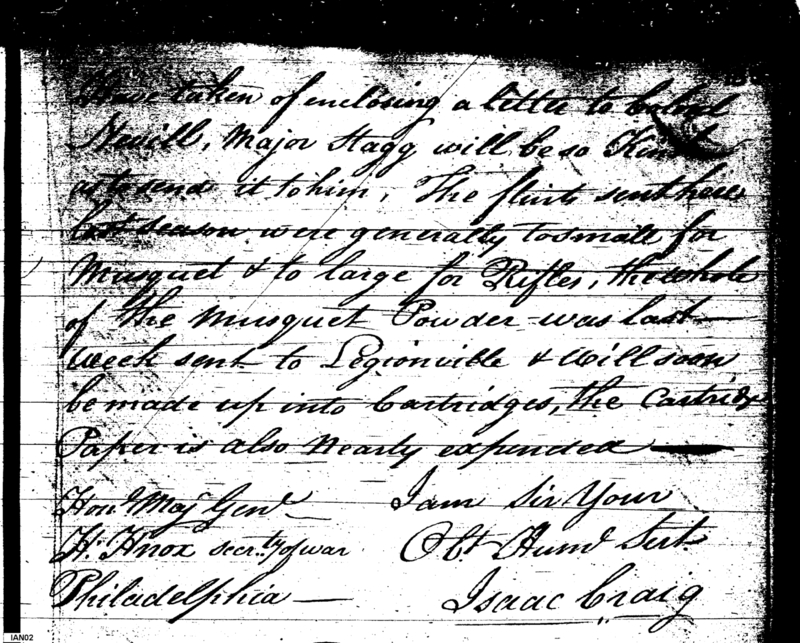 Have taken of enclosing a letter to Colonel
Nevill, Major Stagg will be so Kind
as to send it to him, The flints sent here
last season were generally to small for
Musquet & to large for Rifles, the whole
of the Musquet Powder was last
week sent to Legionville & will soon
be made up into Cartridges, the Cartridge
Paper is also Nearly expended
Hon.d Maj. Genl. I am Sir Your
H. Knox secr.ty of war Obt. Humd. Sert.
Philadelphia — Isaac Craig
IAN02